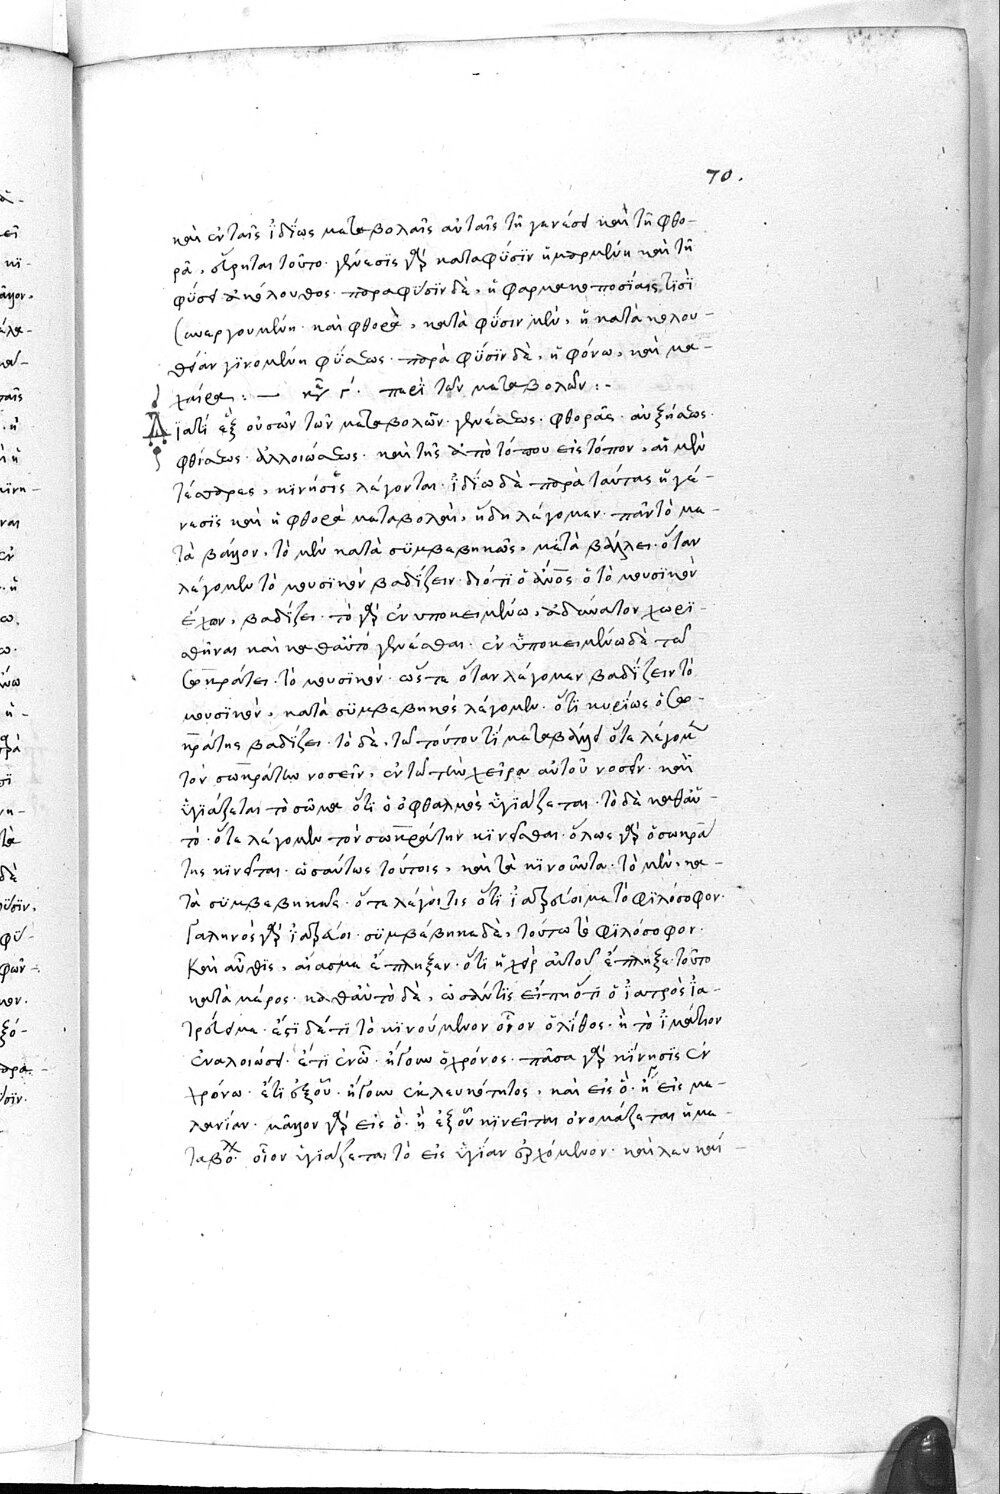 70.
καὶ ἐν ταῖς ἰδίως μεταβολαῖς αὐταῖς τῆ γενέσει καὶ τῆ φθο-
ρᾶ, εἴρηται τοῦτο· γένεσις γὰρ κατὰ φύσϊν ἡ μὲν καὶ τῆ
φύσει ἀκόλουθος· παρὰ φύσϊν δὲ, ἡ φαρμακοποσίαις τισὶ
συνεργουμένη· καὶ φθορὰ, κατὰ φύσιν μὲν, ἡ κατὰ κολου-
θίαν γϊνομένη φύσεως· παρὰ φύσϊν δὲ, ἡ φόνω, καὶ μα-
χαίρα :— κεφ γ´. περὶ τῶν μεταβολῶν :-
Δϊατί ἐξ οὐσῶν τῶν μεταβολῶν· γενέσεως· φθορᾶς· αὐξήσεως·
φθίσεως· ἀλλοιώσεως· καὶ τῆς ἀπὸ τόπου εἰς τόπον, αἱ μὲν
τέσσαρες, κϊνήσεις λέγονται· ἰδίω δὲ παρὰ ταύτας ἡ γέ-
νεσϊς καὶ ἡ φθορὰ μεταβολαὶ, ἤδη λέγομεν· πᾶν τὸ με-
τὰ βάλλον, τὸ μὲν κατὰ σϋμβεβηκὸς, μετὰ βάλλει· ὅταν
λέγομεν τὸ μουσϊκὸν βαδίζειν· διότϊ ὁ ἄνος ὁ τὸ μουσϊκὸν
ἔχων, βαδίζει· τὸ γὰρ ἐν υποκειμένω, ἀδύνατον χωρϊ-
σθῆναι καὶ καθαϋτό γενέσθαι· ἐν ὑποκειμένω δὲ τῶ
Σωκράτει· τὸ μουσϊκόν· ὥστε ὅταν λέγομεν βαδίζειν τὸ
μουσϊκὸν, κατὰ σϋμβεβηκὸς λέγομεν· ὅτϊ κυρίως ὁ Σω-
κράτης βαδίζει· τὸ δὲ, τῶ τούτου τϊ μεταβάλλει ὅτε λέγομεν
τὸν σωκράτην νοσεῖν, ἐν τῶ τὴν χεῖρα αὐτοῦ νοσεῖν· καὶ
ὑγϊάζεται τὸ σῶμα ὅτι ὁ ὀφθαλμὸς ὑγϊάζεται· τὸ δὲ καθαὑ-
τὸ· ὅτε λέγομεν τὸν σωκράτην κϊνεῖσθαι· ὅλως γὰρ ὁ σωκρά
της κϊνεῖται· ὡσαύτως τούτοις, καὶ τὰ κϊνοῦντα· τὸ μὲν, κα-
τὰ σϋμβεβηκὸς· ὅτε λέγει τὶς ὅτϊ ἰατρεύει με τὸ φϊλόσοφον·
Γαληνὸς γὰρ ἰατρεύει· σϋμβέβηκε δὲ, τούτω τὸ φϊλόσοφον·
Καὶ αὖθϊς, αἴασμε ἔπληξεν· ὅτϊ ἡ χεὶρ αὐτοῦ ἔπληξε τοῦτο
κατὰ μέρος· καθαὑτὸ δὲ, ὡσὰν τϊς εἴπη ὅτϊ ὁ ἰατρὸς ἰα-
τρεύει με· ἔςϊ δέ τϊ τὸ κϊνούμενον οἷον ὁ λίθος· ἢ τὸ ἱμάτιον
ἐναλοιώσει· ἔτϊ ἐν ὧ· ἤγουν ὁ χρόνος· πᾶσα γὰρ κϊνησϊς ἐν
χρόνω· ἔτι ἐξ οὗ· ἤγουν ἐκ λευκότητος, καὶ εἰς ὃ· ἤγ εἰς με-
λανίαν· μᾶλλον γὰρ εἰς ὃ· ἢ ἐξ οὗ κϊνεῖται ὀνομάζεται ἡ με-
ταβολ· οἷον ὑγϊάζεται τὸ εἰς ὑγίαν ἐρχόμενον· καὶ λευκαί-